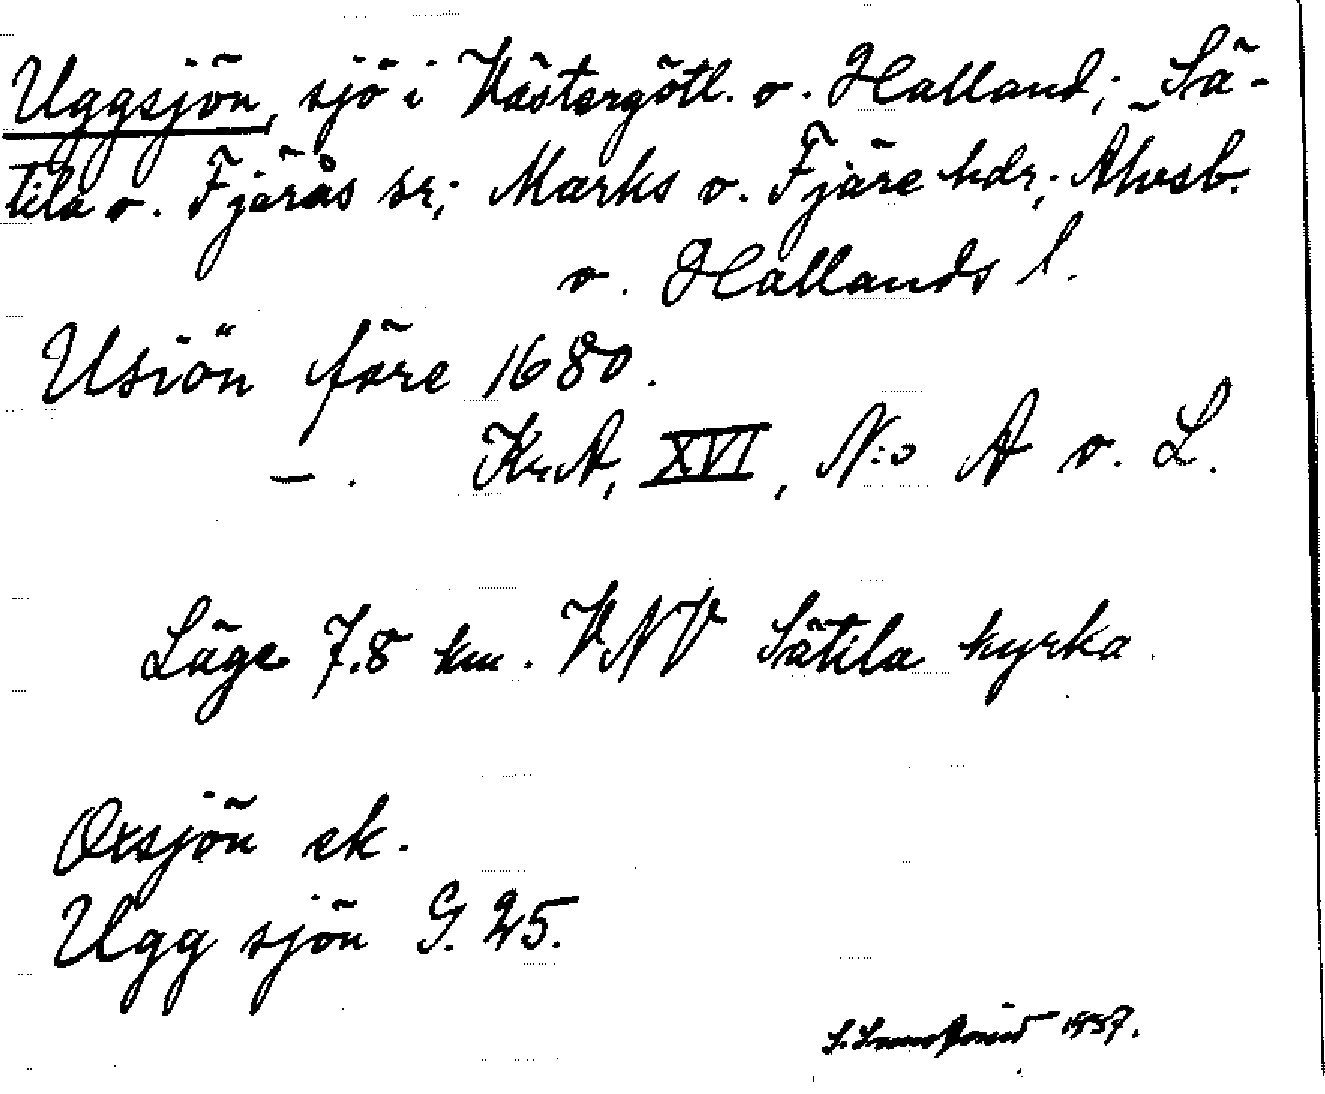 Uggsjön, sjö i Västergötl. o. Halland; Sä-
tila o. Fjärås sr; Marks o. Fjäre hdr; Älvsb.
o. Hallands l.
Usiön före 1680.
—. Kr.A, XVI, N:o A o. L.
Läge 7.8 km. VNV Sätila kyrka
Oxsjön ek.
Ugg sjön G. 25.
1937.